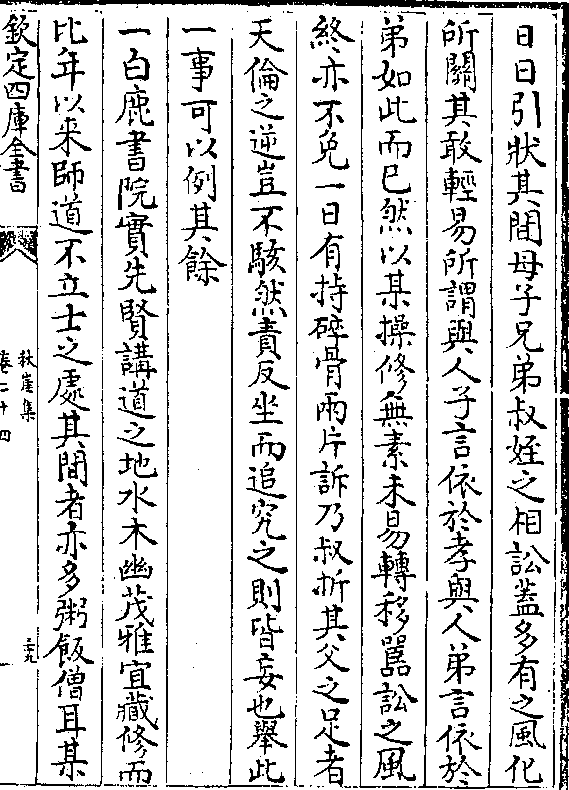 日日引狀其間母子兄弟叔姪之相訟蓋多有之風化
所關其敢輕易所謂與人子言依於孝與人弟言依於
弟如此而已然以某操修無素未易轉移嚚訟之風
終亦不免一日有持碎骨兩片訴乃叔折其父之足者
天倫之逆豈不駭然責反坐而追究之則皆妄也舉此
一事可以例其餘
一白鹿書院實先賢講道之地水木幽茂雅宜藏修而
比年以来師道不立士之處其間者亦多粥飯僧耳某
欽定四庫全書
秋崖集
卷二十四
三九